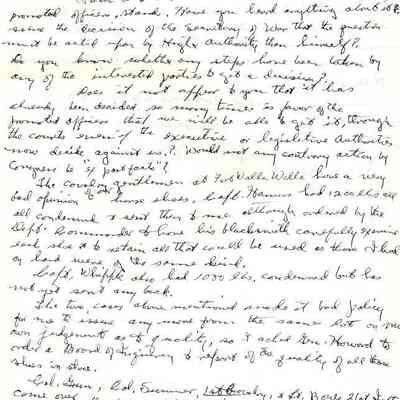 promoted officers, stand. Have you heard anything about it
since the decision of the Secretary of War that the question
must be acted upon by High Authority than himself?
Do you know whether any steps have been taken by
any of the interested parties to get a decision?
Does it not appear to you that it has
already been decided so many times in favor of the
promoted officers that we will be able to get it, through
the courts even if the executive or legislative Authorities
now decide against us.? Would not any contrary action by
Congress be "ex post facto"?
The cavalry gentlemen at Fort Walla Walla have a very
bad opinion of horse shoes. Capt. had 1200 lbs all
all condemned & sent them to me although ordered by the
Dept. Commander to have his blacksmith carefully examine
each shoe & to retain all that could be used as those I had
on hand were of the same kind.
Capt. Whipple also had 1030 lbs. condemned but has
not yet sent any back.
The two cases above mentioned made it bad policy
for me to issue any more from the same lot on my
own judgement as to quality, so I asked Gen. Howard to
order a Board of Inquiry to report of the quality of all those
shoes in store.
Col. Green, Col. Sumner, & Lt. 21st
come over